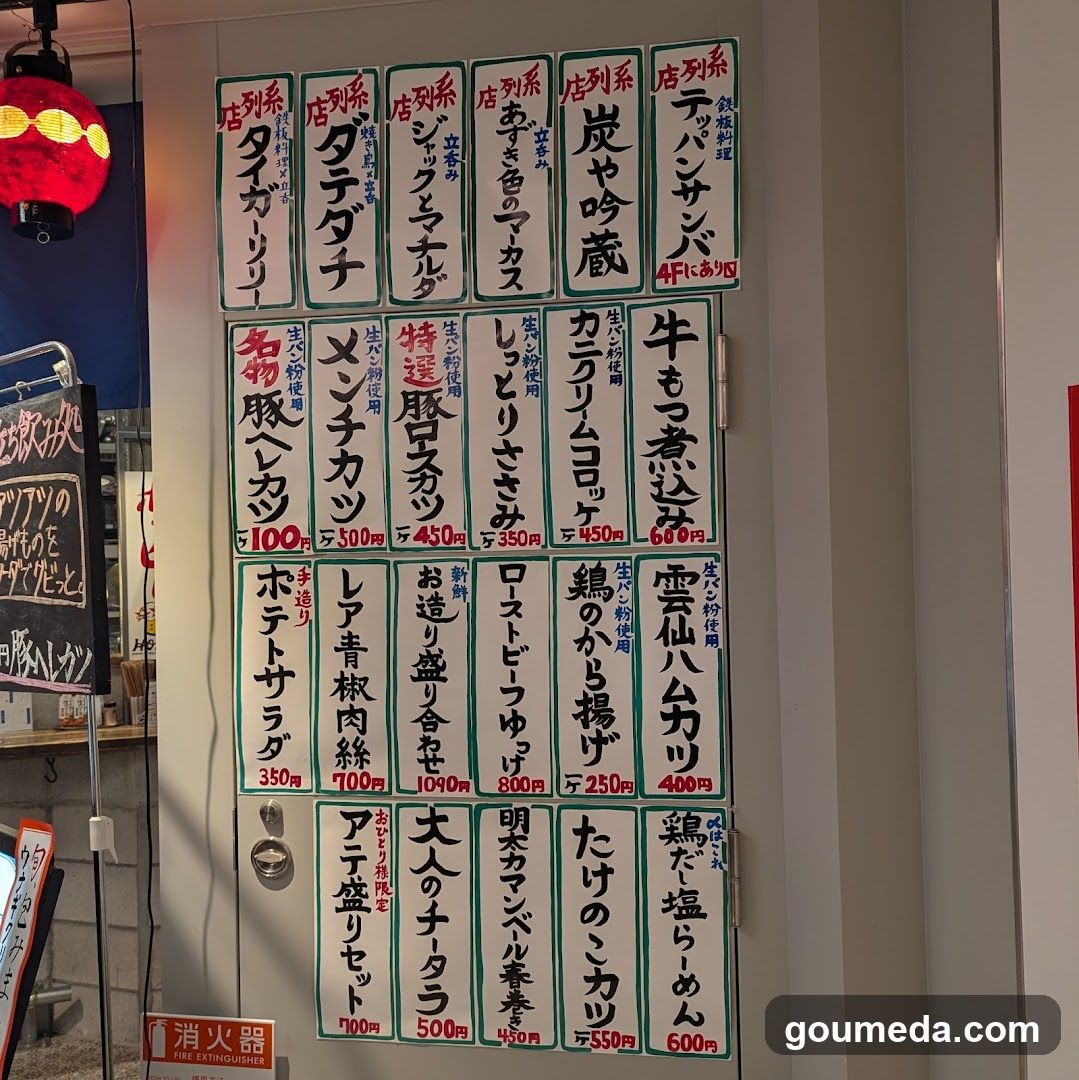 系列店
鉄板料理
テッパンサンバ
4Fにあり
系列店
炭や吟蔵
系列店
立呑み
あずき色のマーカス
系列店
立呑み
ジャックとマチルダ
系列店
焼き鳥×立呑
ダテダチ
系列店
鉄板料理×立呑
タイガーリリー
牛もつ煮込み
600円
生パン粉使用
カニクリームコロッケ
一ケ450円
生パン粉使用
しっとりささみ
一ケ350円
生パン粉使用
特選
豚ロースカツ
一ケ450円
生パン粉使用
メンチカツ
一ケ500円
生パン粉使用
名物
豚ヘレカツ
一ケ100円
生パン粉使用
雲仙ハムカツ
400円
生パン粉使用
鶏のから揚げ
一ケ250円
ローストビーフゆっけ
800円
新鮮
お造り盛り合わせ
1090円
レア青椒肉絲
700円
手造り
ポテトサラダ
350円
〆はこれ
鶏だし塩らーめん
600円
たけのこカツ
一ケ550円
明太カマンベール春巻き
450円
大人のチータラ
500円
おひとり様限定
アテ盛りセット
700円
ち飲み処
アツアツの
揚げものを
でグビっと。
円豚ヘレカツ
消火器
FIRE EXTINGUISHER
goumeda.com